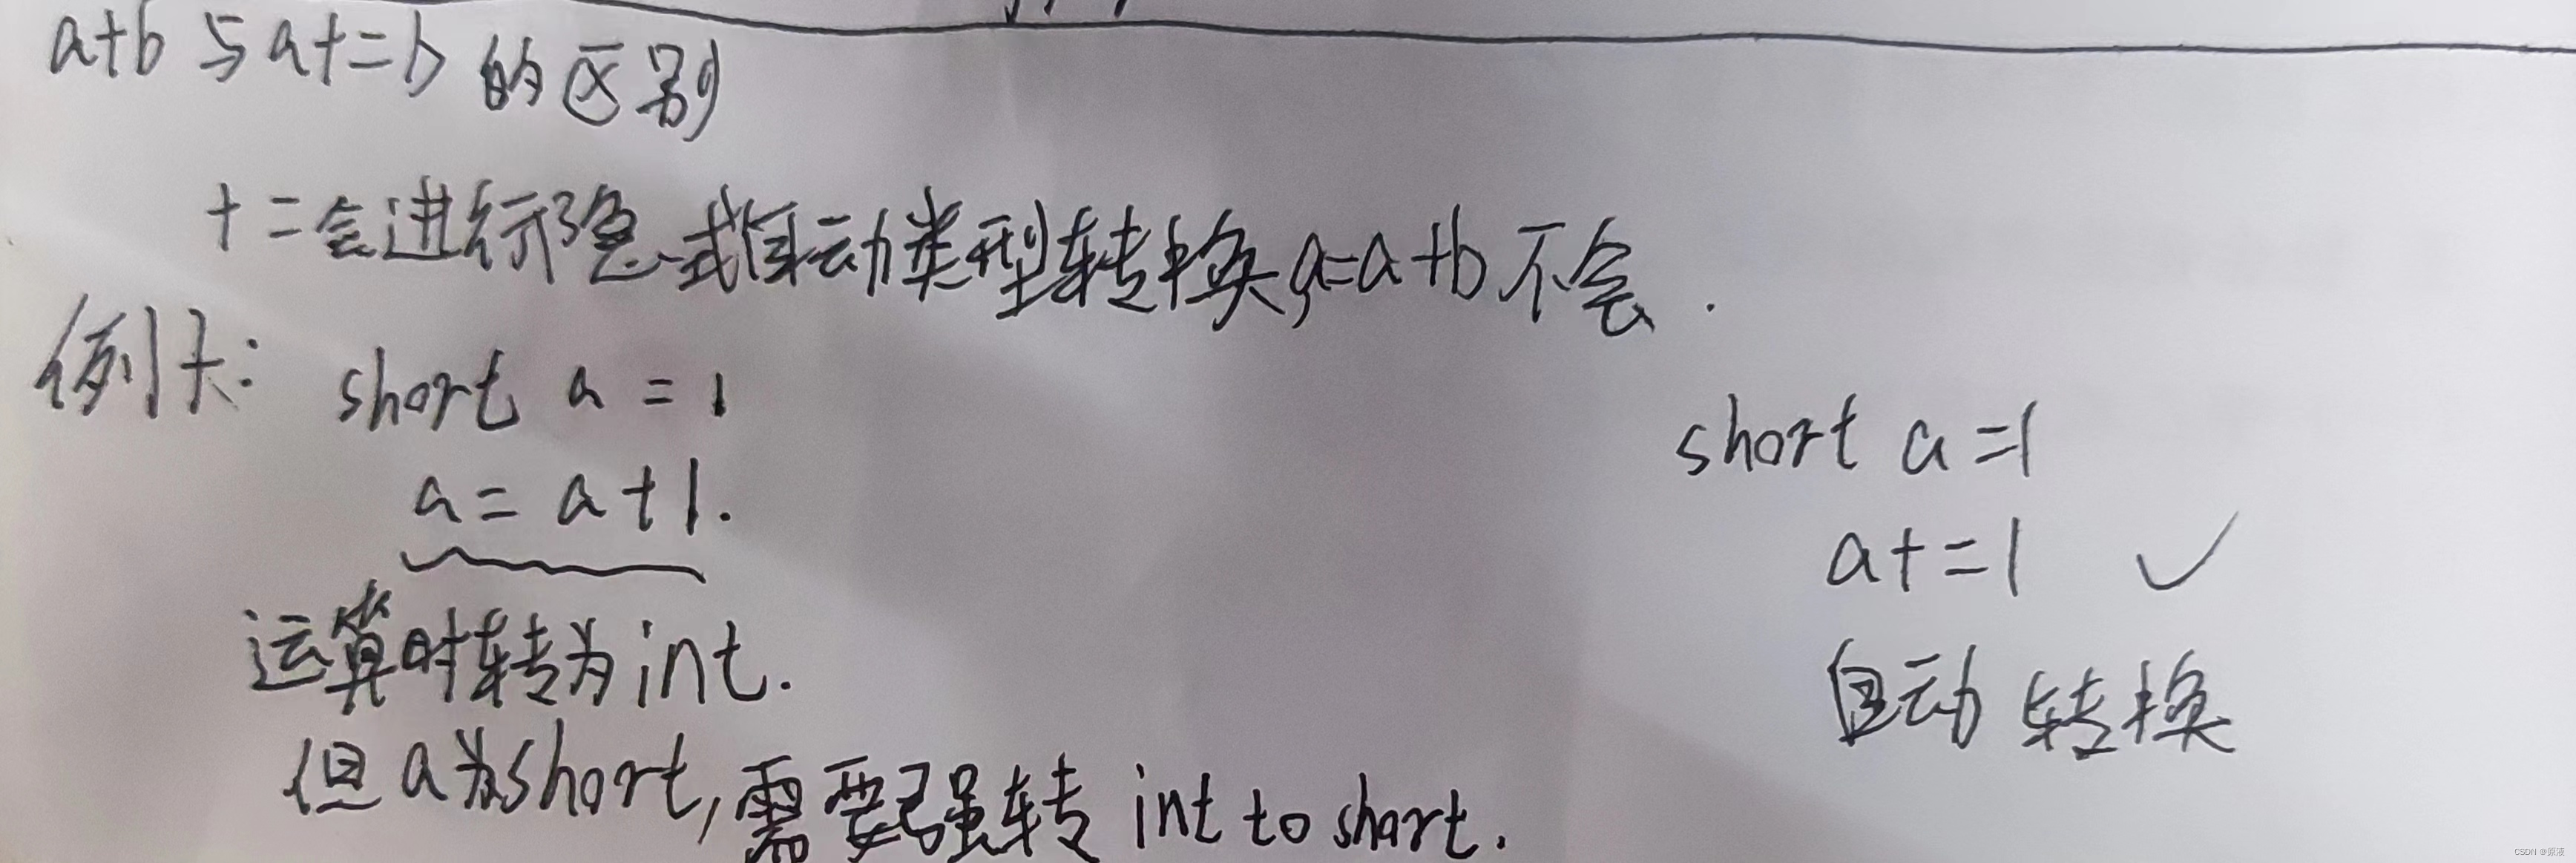 a+b与a+=b的区别
+=会进行隐式自动类型转换,a=a+b不会.
short a = 1
a = a+1.
运算时转为int.
但a为short,需要强转 int to short.
short a =1
a+=1 ✓
自动转换
CSDN @原液